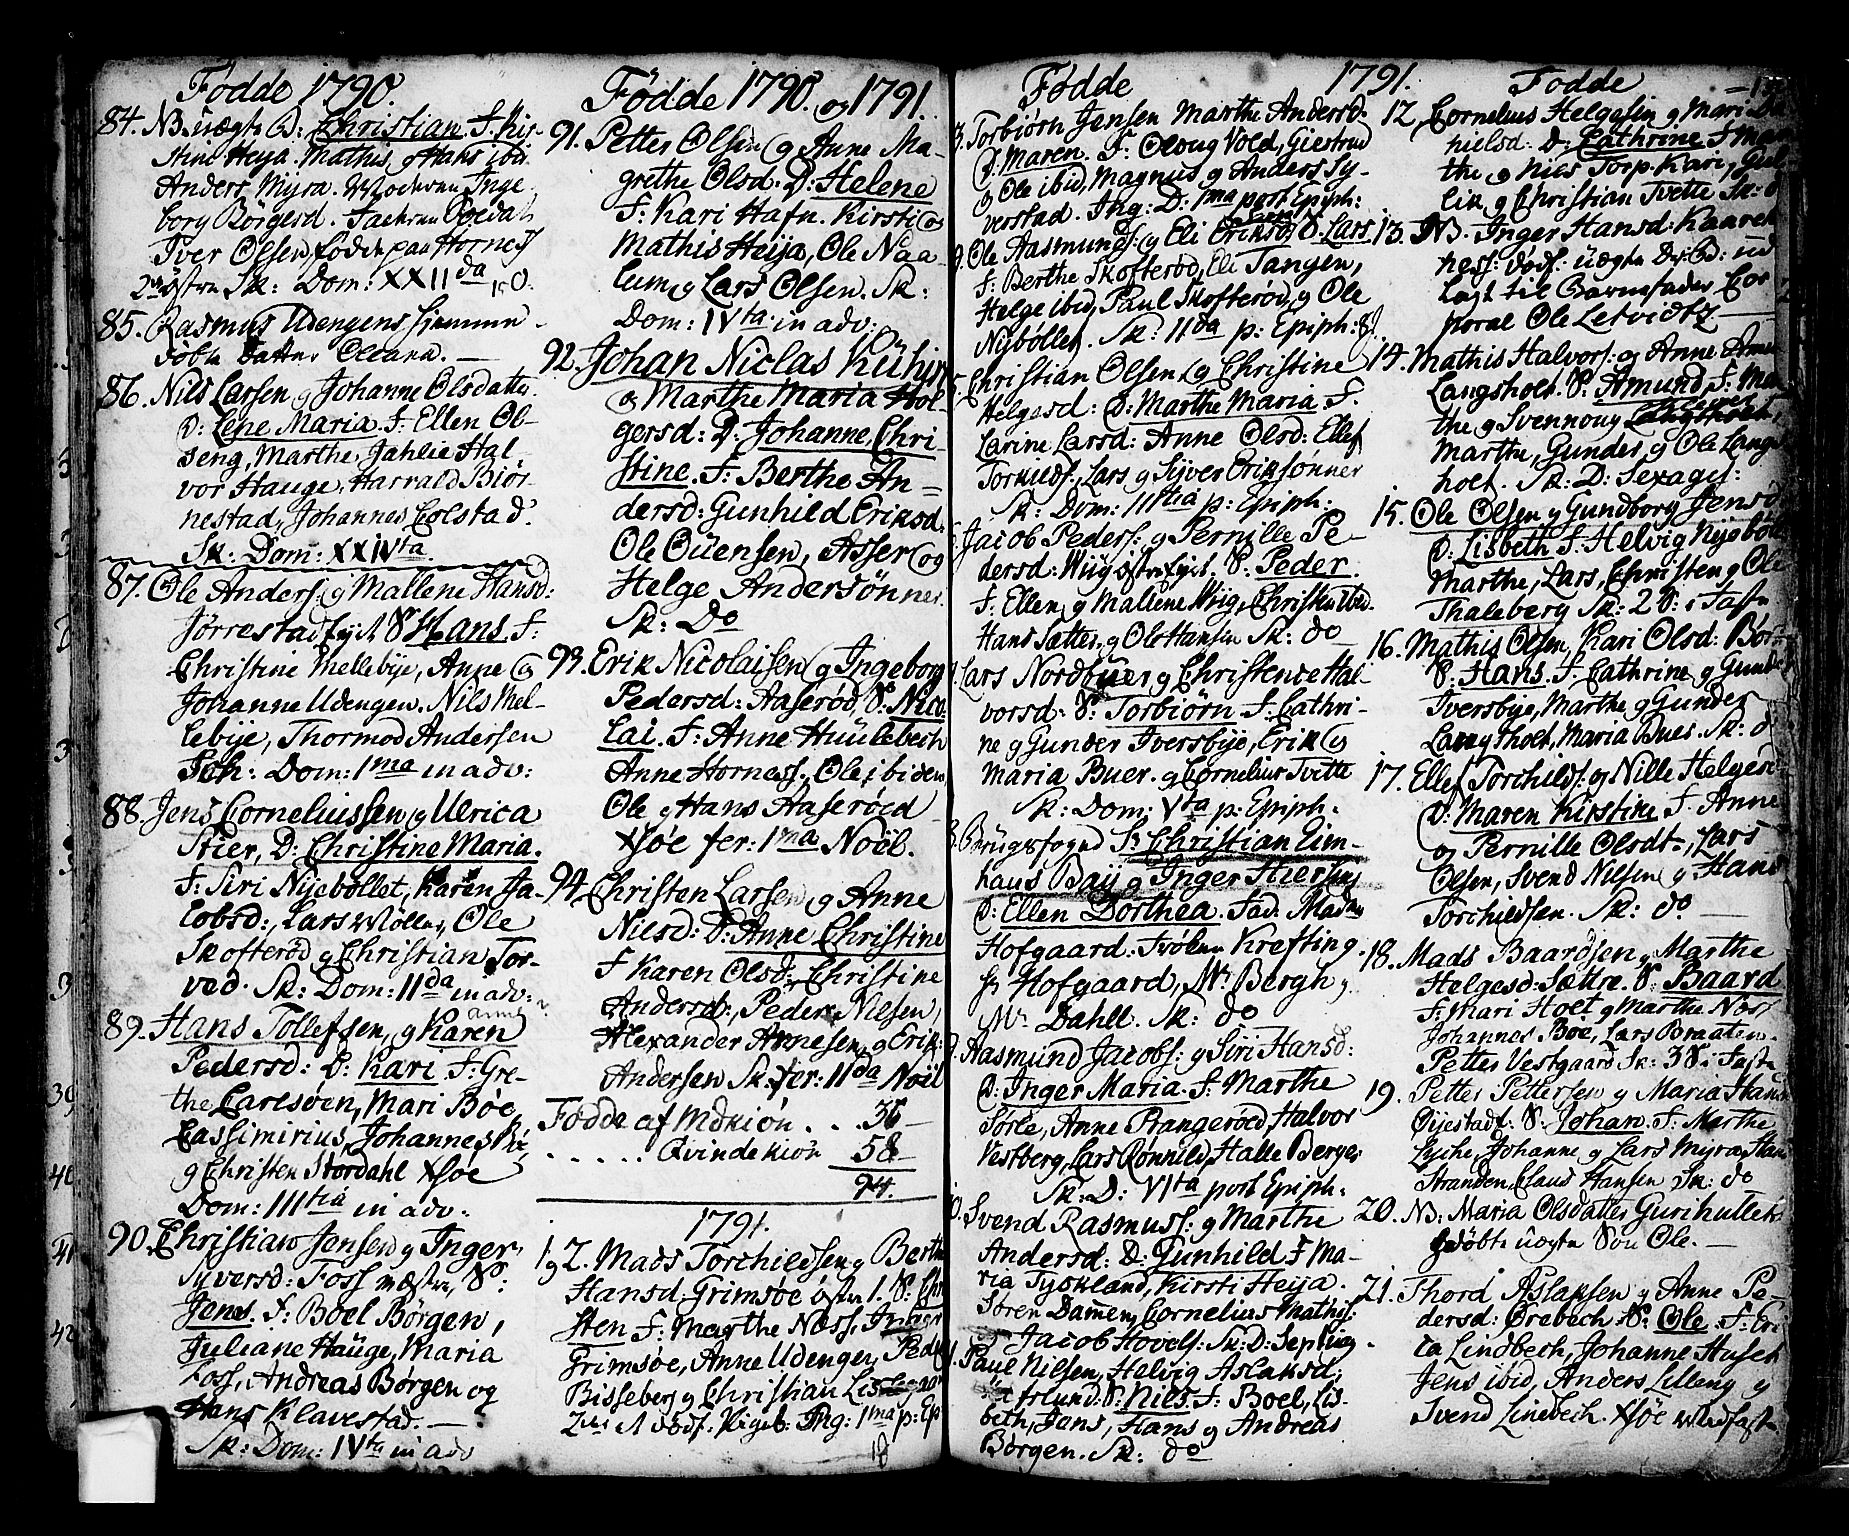 Födde 1790.
84. NB. uægte D: Christian. F. Kir-
stine Heija. Mathis, og Hans ibid
Anders Myra. Moderen Inge
borg Börgersd. Faderen Soldat
Iver Olsen, födde paa Hornes
östre Sk: Dom: XXII da
85. Rasmus Udengens hjemme
döbte Datter Oleana.
86. Nils Larsen og Johanne Olsdatter
D: Lene Maria. F. Ellen Ol-
seng, Marthe Jahlie Hal
vor Hauge, Harrald Biör
nestad, Johannes Colstad.
Sk: Dom: XXIV ta
87. Ole Anders: og Mallene Hansd:
Jörrestad S Hans F:
Christine Mellebye, Anne og
Johanne Udengen. Nils Mel-
lebije, Thormod Andersen
Ich: Dom: 1 ma in adv:
88. Jens Corneliussen og Ulrica
Stier, D: Christine Maria.
F: Siri Nijebøllet, Karen Ja-
cobsd:, Lars Möller, Ole
Skofteröd og Christian Tor-
ved. Sk: Dom: 11 da in adv:
anne
89. Hans Tollefsen, og Karen
Pedersd: D: Kari F: Gre-
the Carlsöen, Mari Böe,
Cassimirius, Johannes
og Christen Stordahl Xsöe
Dom: III tia in adv.
90. Christian Jensen og Inger
Syversd: Foss næstre, S:
Jens. F: Boel Börgen,
Juliane Hauge, Maria
Foss, Andreas Börgen og
Hans Klavestad.
Sk: Dom: IV ta in adv
Födde 1790. og 1791.
91. Petter Olsen og Anne Ma-
grethe Olsd. D: Helene
F: Kari Hafn. Kirsti og
Mathis Heija, Ole Naa-
lum, og Lars Olsen. Sk:
Dom: IV ta in adv:
92. Johan Niclas Kühn
og Marthe Maria Hol-
gersd: D: Johanne Chri-
stine. F: Berthe An-
dersd: Gunhild Eriksd.
Ole Ouensen, Asser og
Helge Andersönner
Sk: Do
93. Erik Nicolaisen og Ingeborg
Pedersd: Aaseröd, S: Nico-
lai. F: Anne Huulebech
Anne Horness, Ole ibidem,
Ole og Hans Haseröed
Xsöe fer: 1 ma Noël.
94. Christen Larsen, og Anne
Nilsd: D: Anne Christine
F Karen Olsd: Christine
Andersd:, Peder Nilsen,
Alexander Annesen, og Erik:
Andersen Sk: fer: 11 da Noël
Födde af Mdkiön . . 36
. . . . . Qvindekiön 58
94.
1791.
1 og 2. Mads Torchildsen og Berthe
Hansd: Grimsöe östre 1. S: Chri
sten F: Marthe Næss. Inger
Grimsöe, Anne Udengen, Peder
Bisseberg og Christian
döds. Ing: 1 ma p: Ep
Födde 1791.
3. Torbiörn Jensen Marthe Andersd.
D: Maren. F: Oloug Vold, Giestrud
og Ole ibid, Magnus og Anders Sy-
verstad. Ing: D: 1 ma post Epiph:
4. Ole Aasmunds: og Eli Eriksd. S. Lars
F: Berthe Skofteröd, Eli Tangen,
Helge ibid, Paul Skofteröd, og Ole
Nyböllet. Sk: 11 da p: Epiph:
5. Christian Olsen og Christine
Helgesd: D: Marthe Maria F.
Larine Larsd: Anne Olsd: Ellef
Torkilds:, Lars og Syver Eriksönner
Sk: Dom: III tia p: Epiph:
6. Jacob Peders: og Pernille Pe-
dersd: Wiig S: Peder.
F: Ellen og Mallene Wiig, Christen ibid.
Hans Sætter, og Ole Hansen Sk: do
7. Lars Nordbuer og Christence Hal-
vorsd: S: Torbiörn F: Cathri-
ne og Gunder Iversbye, Erik og
Maria Buer. og Cornelius Tvette
Sk: Dom: V ta p: Epiph:
8. Brügsfogd Sr Christian Eim-
haus Baij og Inger Stiersens
D: Ellen Dorthea. Fad. Madm
Hofgaard: Frölen Krefting.
Sr Hofgaard, Mr Bergh,
Mr Dahll. Sk: do
9. Aasmund Jacobs: og Siri Hansd:
D: Inger Maria. F: Marthe
Sörle, Anne Prangeröed Halvor
Vestberg, Lars Rønnild, Halle Berger
Sk: D: VI ta post Epiph:
10. Svend Rasmuss: og Marthe
Andersd: D: Gunhild F Ma-
ria Tydskland, Kirsti Heija.
Sören Dammen, Cornelius Mathis:
Jacob Hovels: Sk: D: Septuag.
11. Paul Nilsen, Helvig Aslaksd:
S: Nils. F: Boel, Lis-
beth, Jens, Hans og Andreas
Börgen. Sk: do
Födde
12. Cornelius Helgesen og Mari Da
nielsd: D: Cathrine F Mar
the og Nils Torp. Kari, Gul
lik og Christian Tvette Sk: d
13. NB. Inger Hansd: Kaaren
ness: döds: uægte D:
lagt til Barnefader Cor
poral Ole Letvidtz
14. Mathis Halvors: og Anne Amun
Langsholt. S: Amund F. Mar
the og Svennoug
Marthe, Gunder og Ole Langs
holt. Sk: D: Sexages:
15. Ole Olsen og Gundborg Jensd
D: Lisbeth F: Helvig Nyeböll
Marthe, Lars, Christen og Ole
Thaleberg Sk: 2 S: i Faste
16. Mathis Olsen, Kari Olsd: Bör
S. Hans. F. Cathrine og Gunde
Iversbye, Marthe og Gunder
Langsholt, Maria Bues. Sk: d
17. Ellef Torchilds: og Nille Helgesd
D: Maren Kirstine F. Anne
og Pernille Olsdt, Lars
Olsen, Svend Nilsen og Hans
Torchildsen. Sk: do
18. Mads Baardsen, Marthe
Helgesd: Sættre. S: Baard
F: Mari Holt og Marthe Nor
Johannes Böe, Lars Braaten.
Petter Vestgaard Sk: 3 S: i Faste
19. Petter Pettersen og Maria Hans
Öijestad: S: Johan F: Marthe
Lyche, Johanne og Lars Myra, Hans
Stranden, Claus Hansen Sk: do
20. NB. Maria Olsdatter Gurihullet
døbte uægte Søn Ole.
21. Thord Aslaksen og Anne Pe-
dersd: Örebech S: Ole. F: Eri
ca Lindbech, Johanne Huseb
Jens ibid, Anders Lilleng og
Svend Lindbech. Xsöe Midfaste